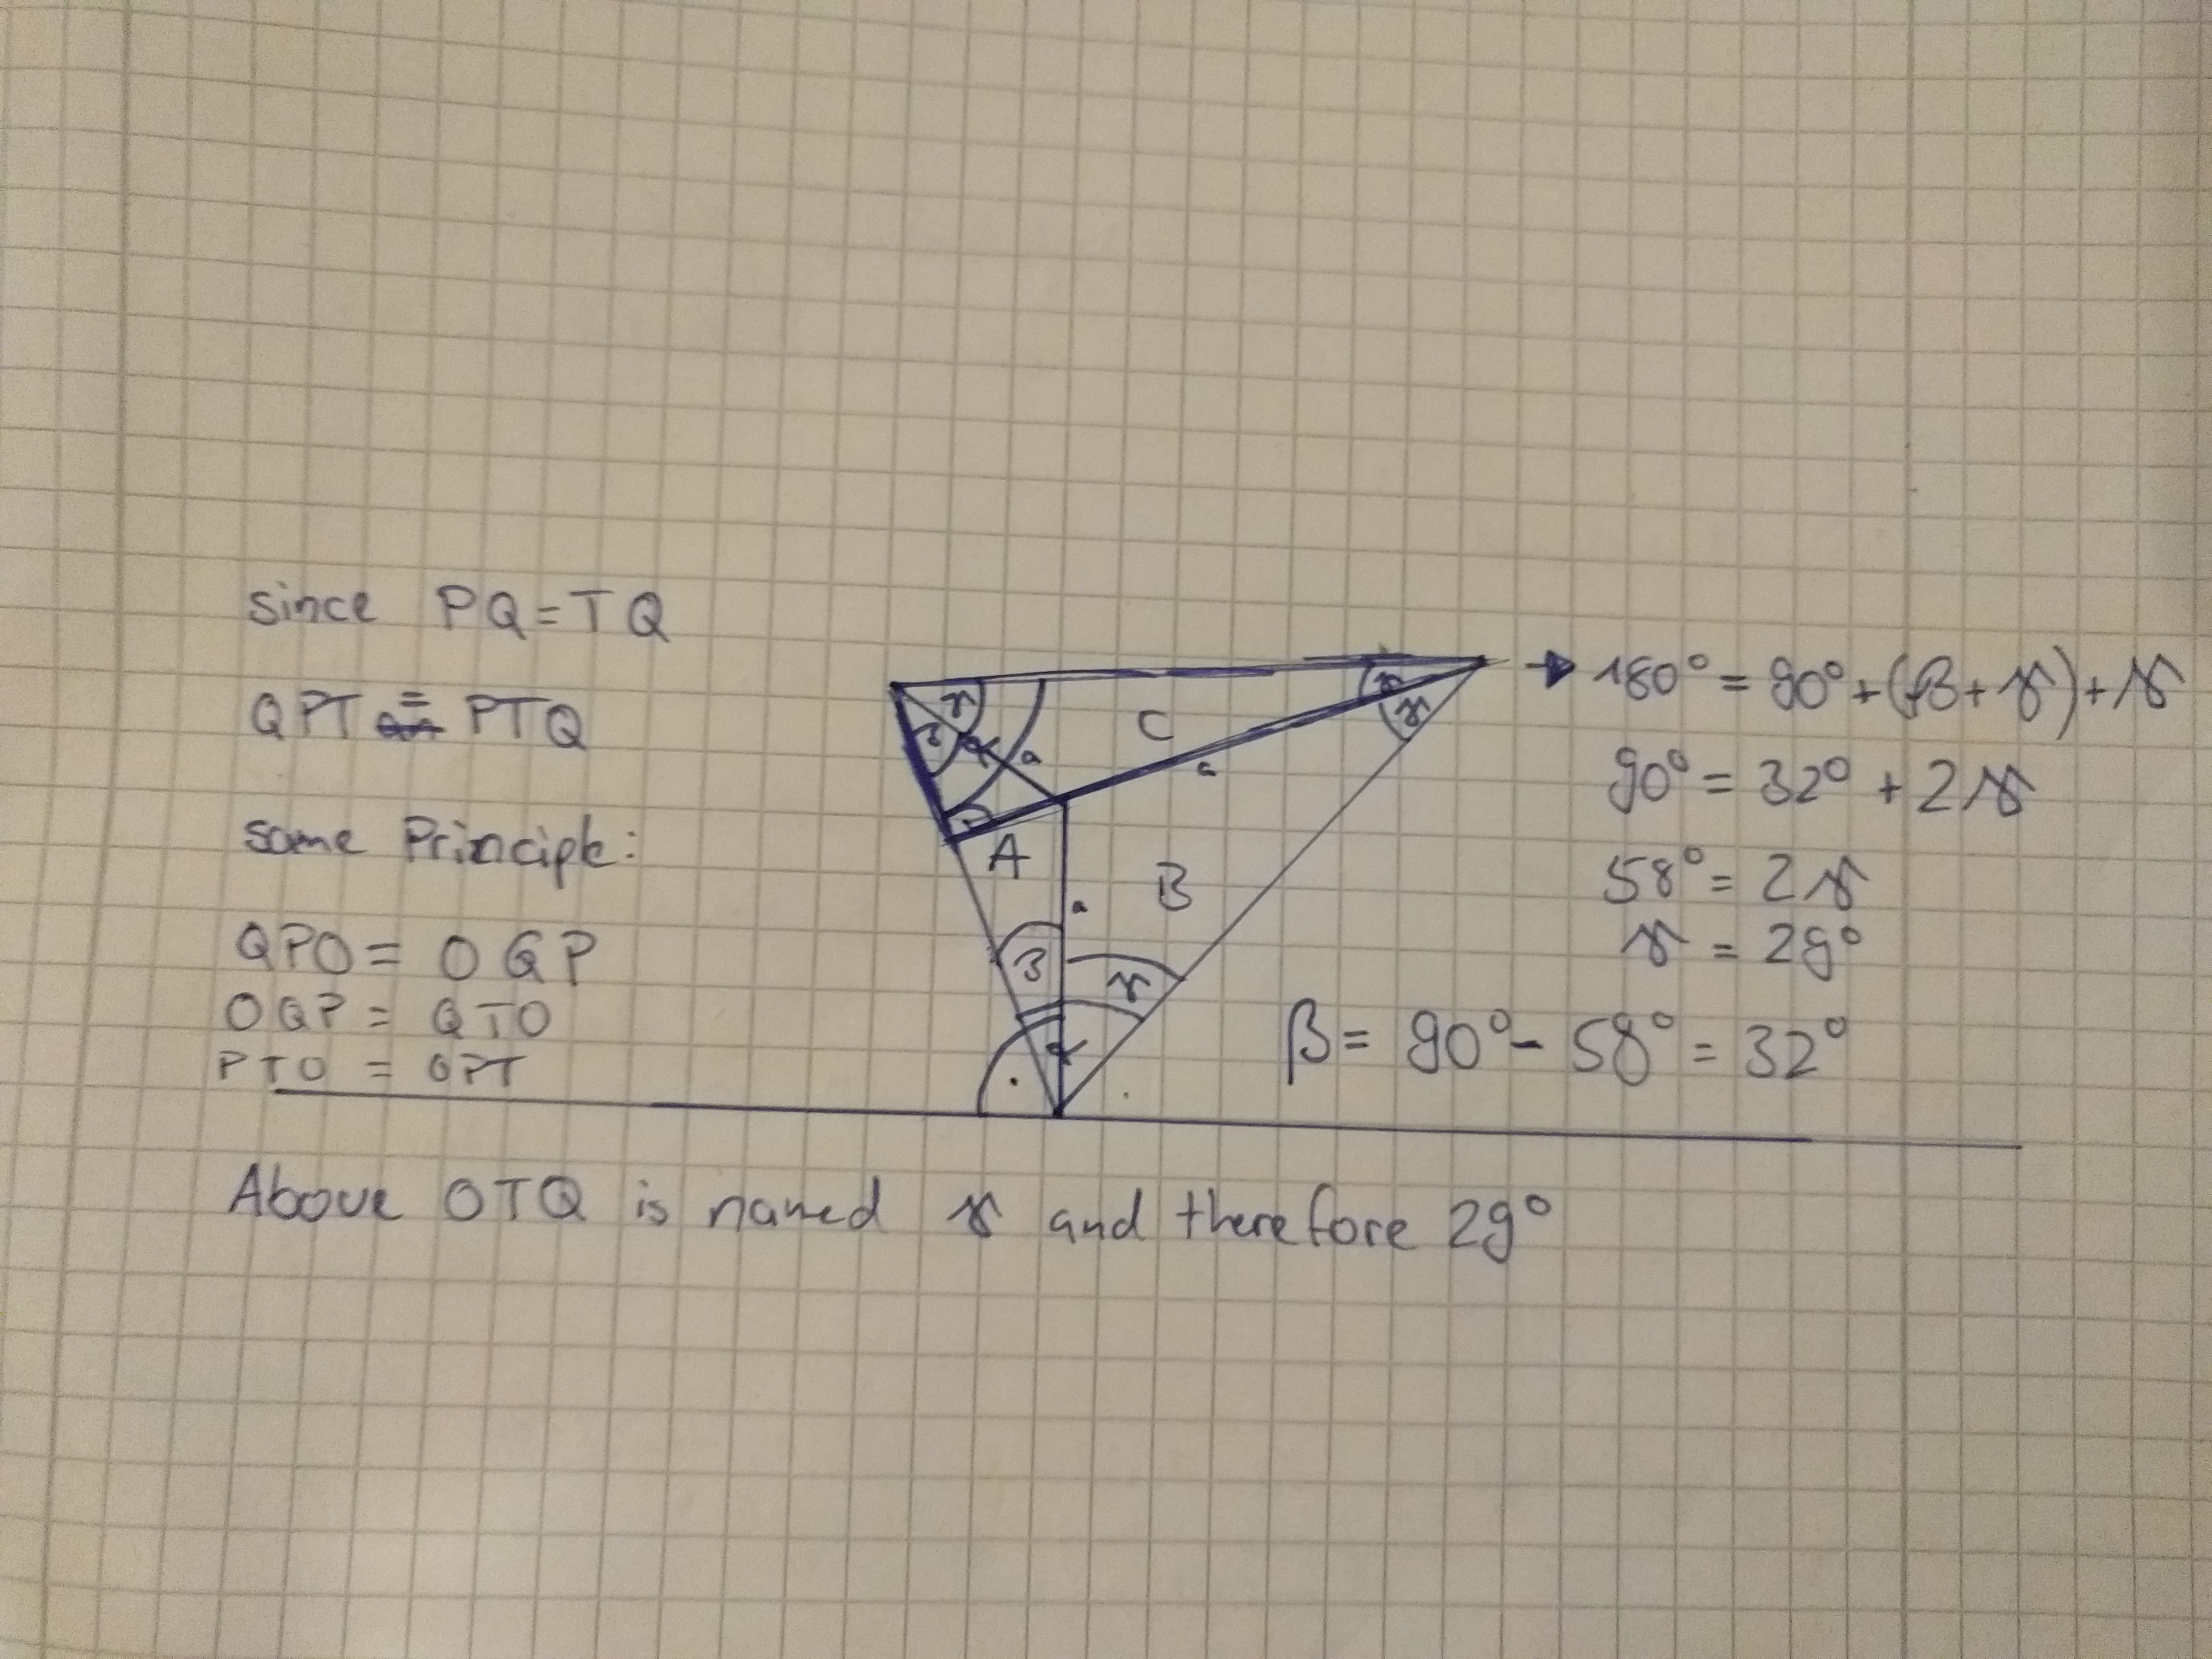 since PQ = TQ
QPT = PTQ
same Principle:
QPO = OQP
OQP = QTO
PTO = OPT
γ
β
α
a
γ
γ
C
a
A
B
a
β
γ
α
→ 180° = 90° + (β + γ) + γ
90° = 32° + 2γ
58° = 2γ
γ = 29°
β = 90° - 58° = 32°
Above OTQ is named γ and therefore 29°